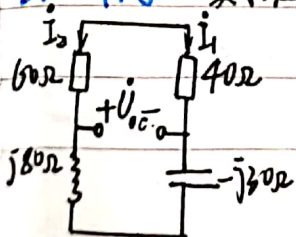 İ₂ İ₁
60Ω 40Ω
+ U̇oc -
j80Ω -j30Ω